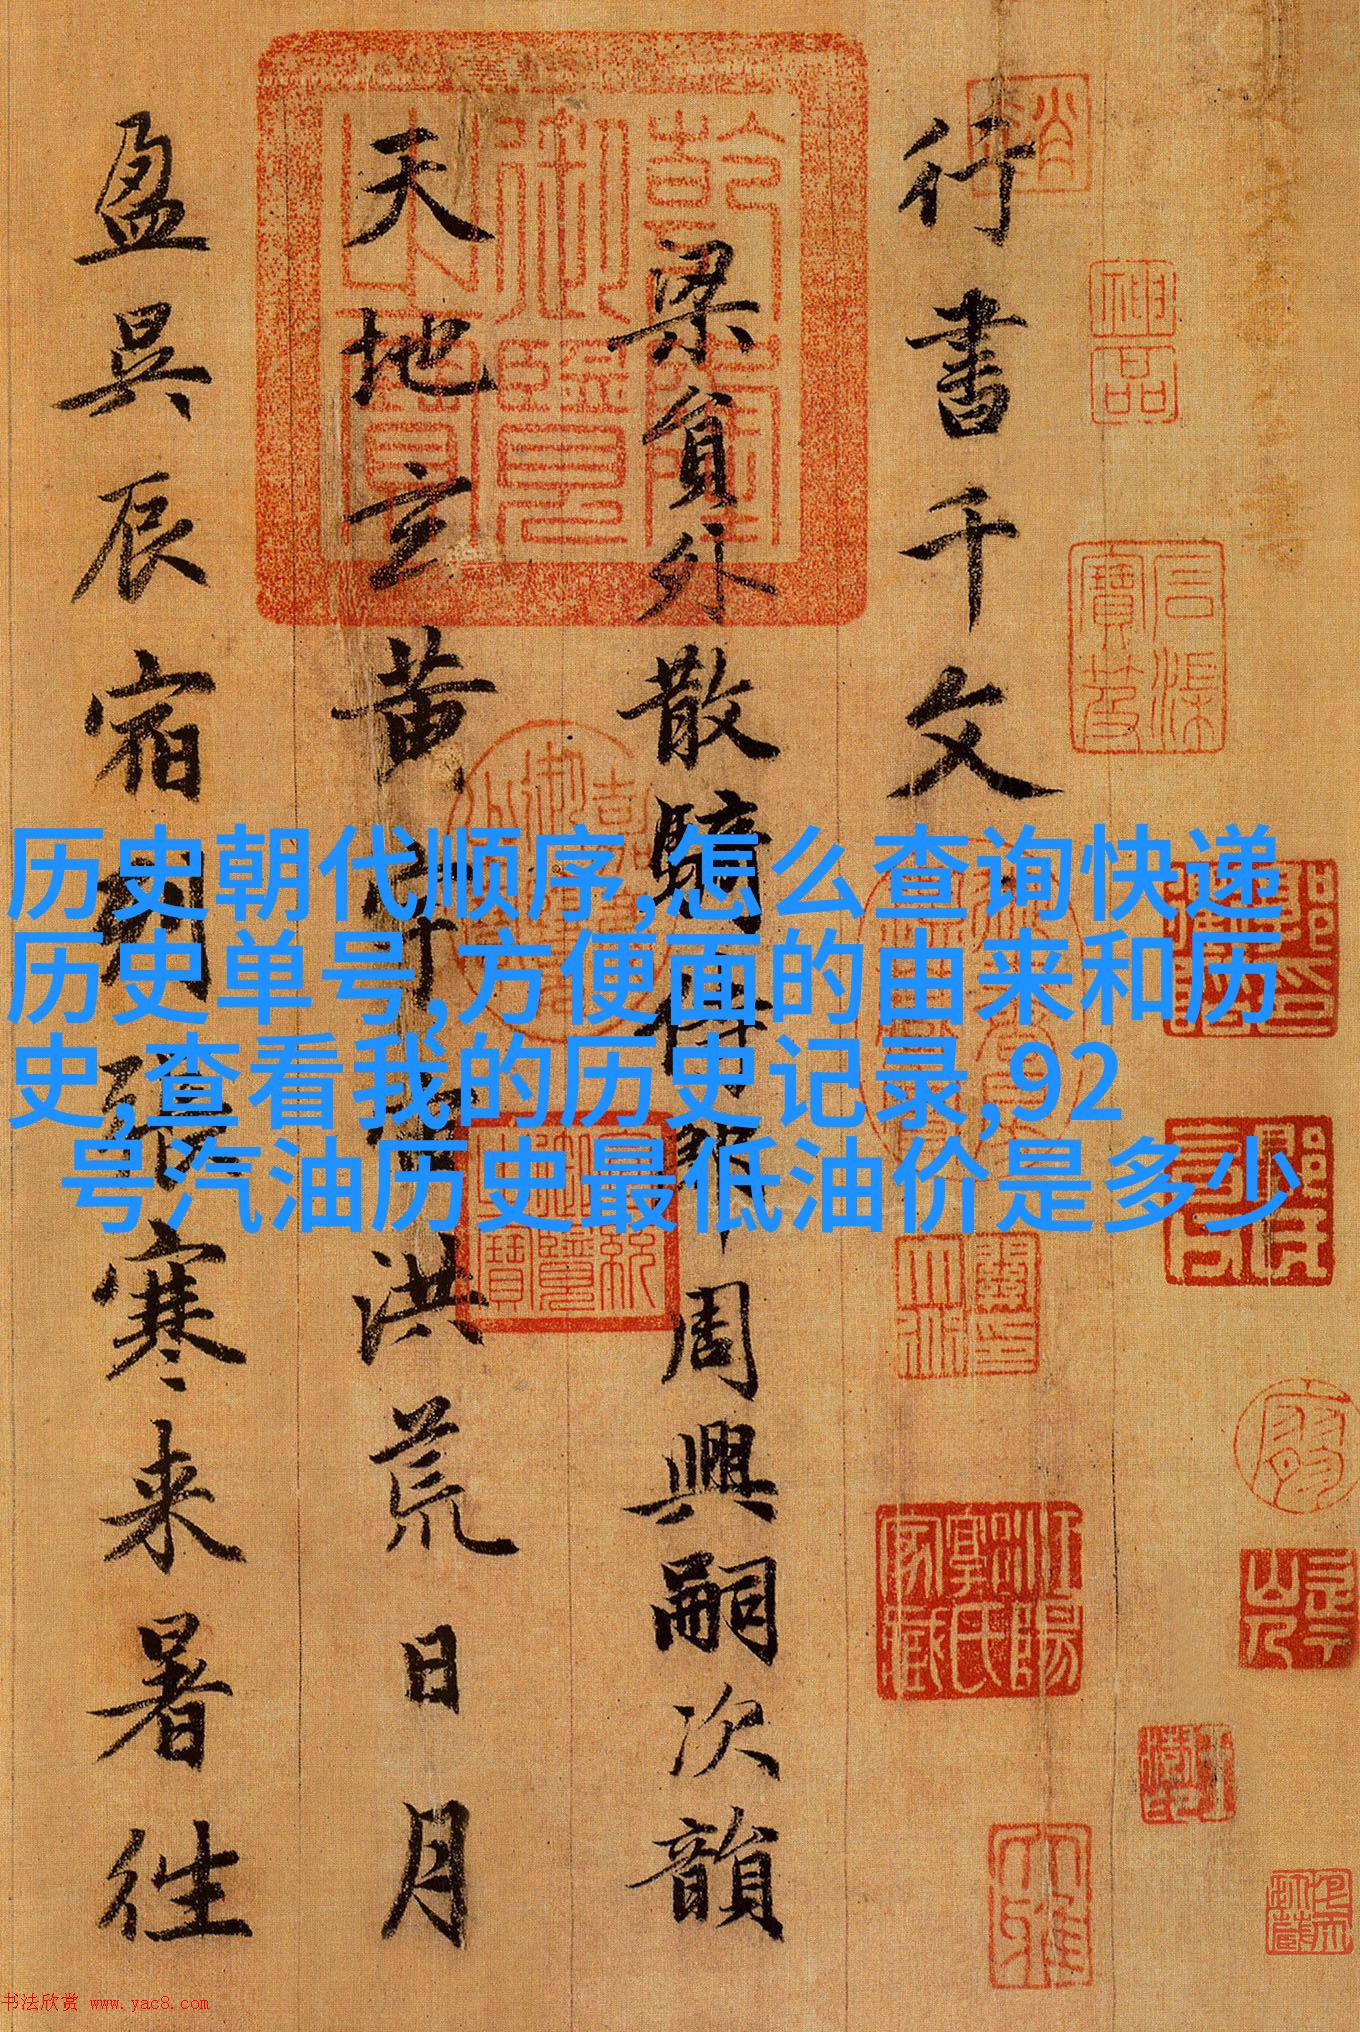 行書千文
梁貟外散騎侍郎周興嗣次韻
天地玄黄宇宙洪荒日月
盈昃辰宿列張寒来暑往
乾隆御覽之寶
神品
宣統御覽之寶
大雅
历史朝代顺序,怎么查询快递
历史单号,方便面的由来和历
史,查看我的历史记录,92
号汽油历史最低油价是多少
书法欣赏 www.yac8.com